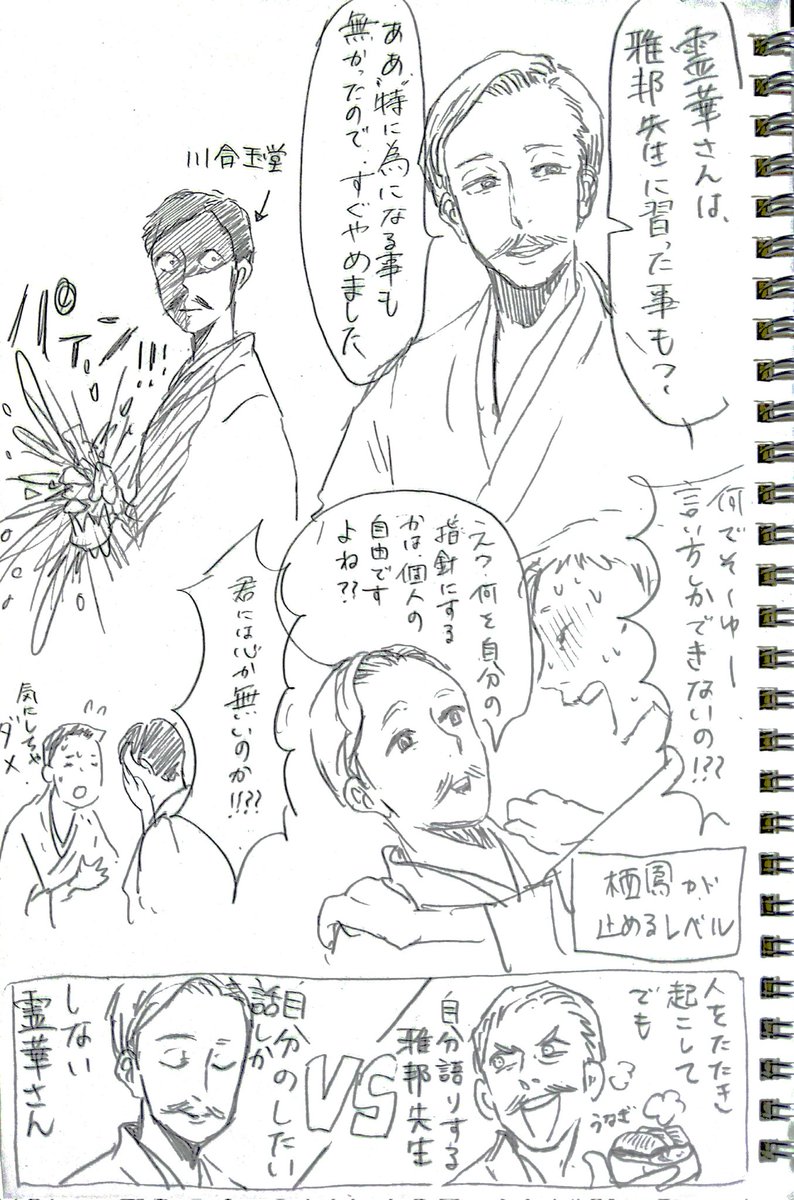 霊華さんは、
雅邦先生に習った事も?
ああ"特に為になる事も
無かったので、すぐやめました
川合玉堂
パァーン!!!
何でそーゆー
言い方しかできないの!??
えっ、何を自分の
指針にする
かは、個人の
自由です
よね??
君には心が無いのか!!??
気にしちゃ
ダメ
栖鳳が
止めるレベル
人をたたき
起こして
でも
自分語りする
雅邦先生
うなぎ
VS
自分のしたい
話しか
しない
霊華さん